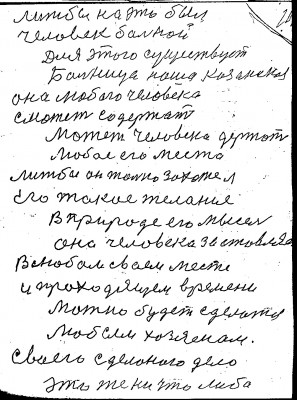 лижбы на это был
человек балной
Для этого существует
Балница наша Казанская
она любого человека
сможет содержат
Может человека держат
Любое его места
лижбы он только захотел
Его такое желание
В природе его мысел
она человека заставляе
В любом своем месте
и проходящем времени
можно будет сделатся
Любелм хозяенам.
своего сделоного дело
это же ни что либа